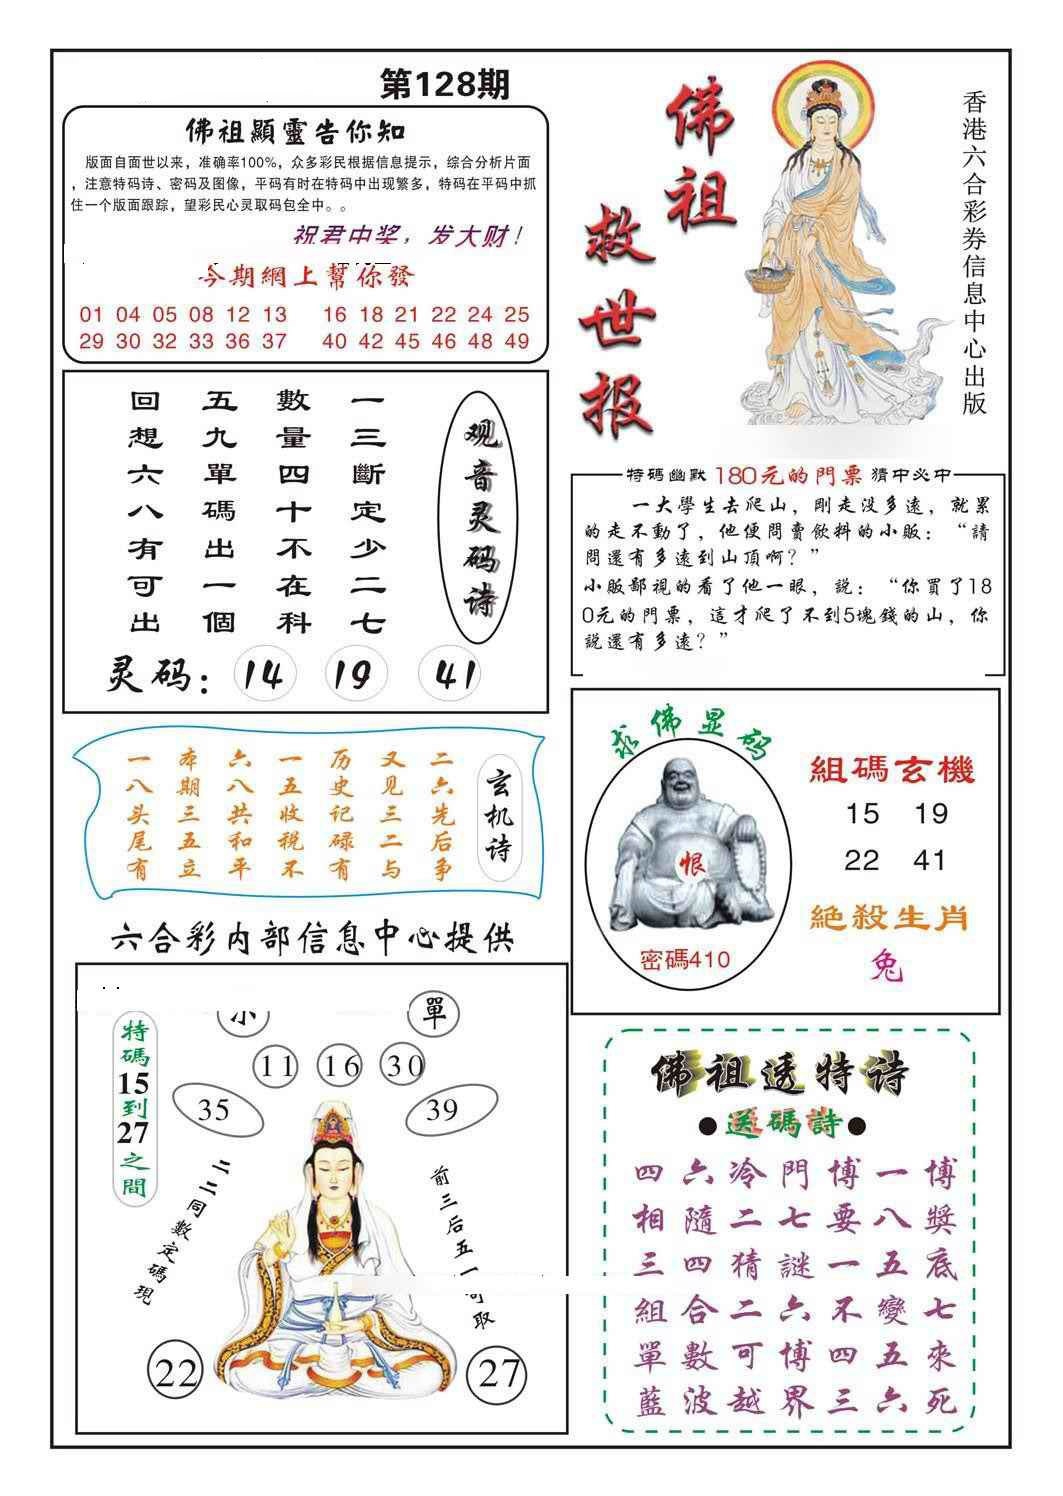 第128期
佛祖顯靈告你知
版面自面世以来，准确率100%，众多彩民根据信息提示，综合分析片面
，注意特码诗、密码及图像，平码有时在特码中出现繁多，特码在平码中抓
住一个版面跟踪，望彩民心灵取码包全中。。
祝君中奖，发大财！
今期網上幫你發
01 04 05 08 12 13 16 18 21 22 24 25
29 30 32 33 36 37 40 42 45 46 48 49
佛祖
救世报
香港六合彩券信息中心出版
观音灵码诗
一三斷定少二七
數量四十不在科
五九單碼出一個
回想六八有可出
灵码：14 19 41
特码幽默 180元的門票 猜中必中
一大學生去爬山，剛走没多遠，就累
的走不動了，他便問賣飲料的小販：“請
問還有多遠到山頂啊？”
小販鄙視的看了他一眼，説：“你買了18
0元的門票，這才爬了不到5塊錢的山，你
説還有多遠？”
玄机诗
二六先后争
又见三二与
历史记碌有
一五收税不
六八共和平
本期三五立
一八头尾有
求佛显码
恨
密碼410
組碼玄機
15 19
22 41
絕殺生肖
兔
六合彩内部信息中心提供
單
特碼15到27之間
11 16 30
35 39
二二同數定碼現
前三后五一
取
22 27
佛祖透特诗
●送碼詩●
四六冷門博一博
相隨二七要八獎
三四猜謎一五底
組合二六不變七
單數可博四五來
藍波越界三六死